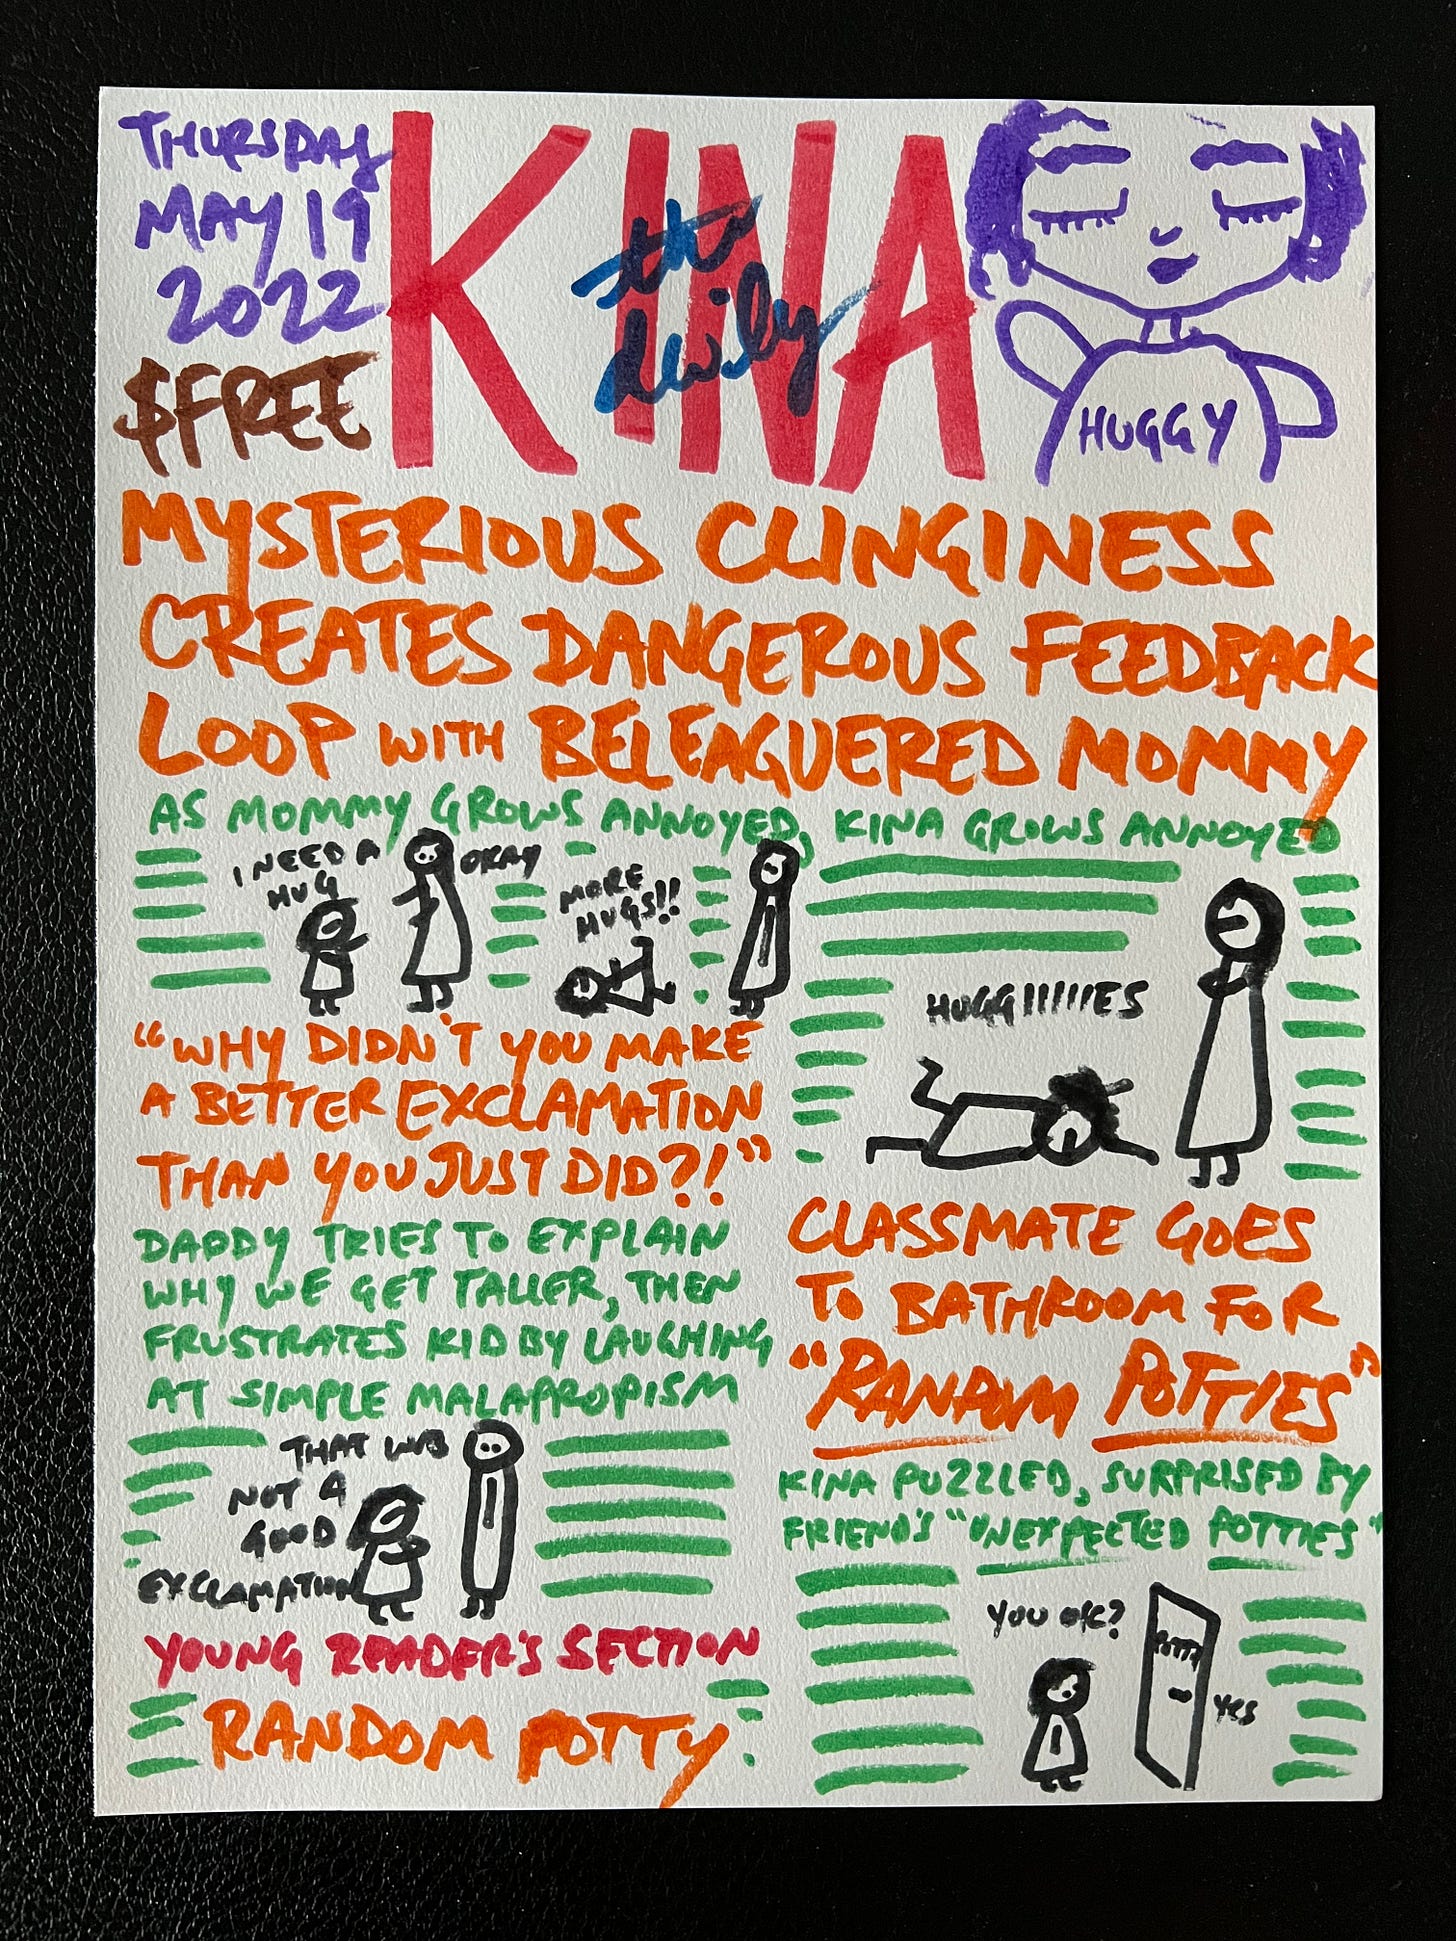 THURSDAY
MAY 19
2022
$FREE
KINA
the daily
HUGGY
MYSTERIOUS CLINGINESS
CREATES DANGEROUS FEEDBACK
LOOP WITH BELEAGUERED MOMMY
AS MOMMY GROWS ANNOYED, KINA GROWS ANNOYED
I NEED A
HUG
OKAY
MORE
HUGS!!
HUGGIIIIIIES
"WHY DIDN'T YOU MAKE
A BETTER EXCLAMATION
THAN YOU JUST DID?!"
DADDY TRIES TO EXPLAIN
WHY WE GET TALLER, THEN
FRUSTRATES KID BY LAUGHING
AT SIMPLE MALAPROPISM
THAT WAS
NOT A
GOOD
EXCLAMATION
YOUNG READER'S SECTION
RANDOM POTTY
CLASSMATE GOES
TO BATHROOM FOR
"RANDOM POTTIES"
KINA PUZZLED, SURPRISED BY
FRIEND'S "UNEXPECTED POTTIES"
YOU OK?
POTTY
YES